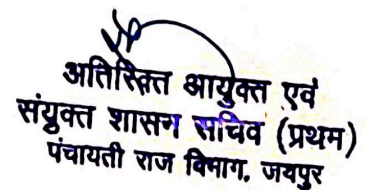 अतिरिक्त आयुक्त एवं
संयुक्त शासन सचिव (प्रथम)
पंचायती राज विभाग, जयपुर